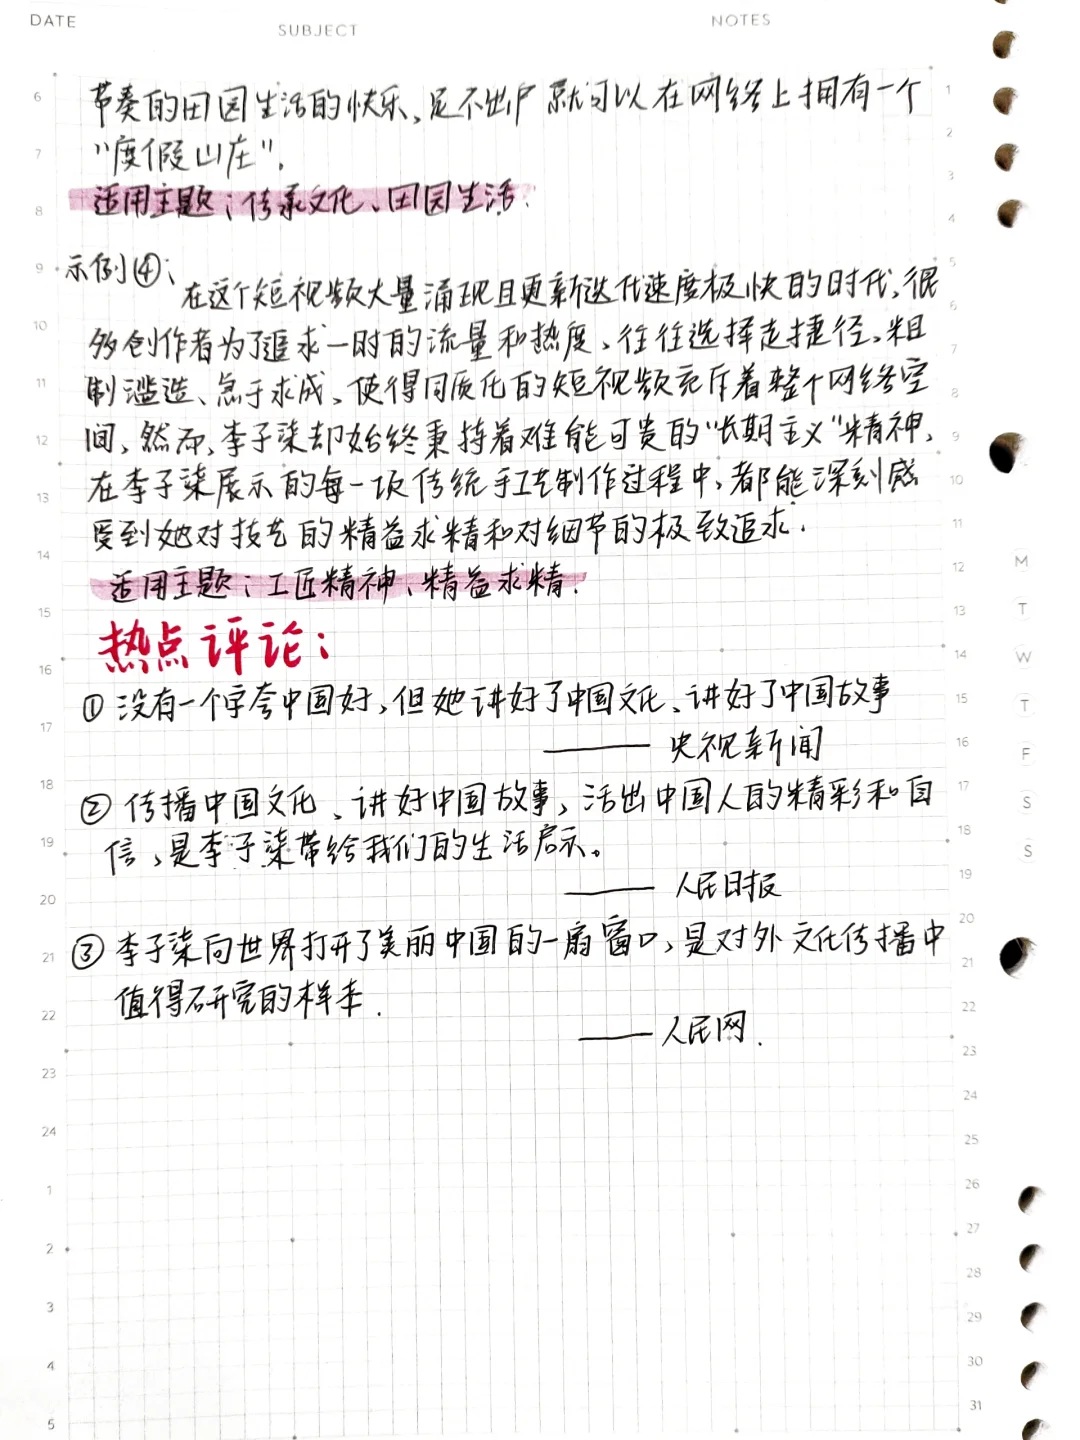 DATE
SUBJECT
NOTES
节奏的田园生活的快乐、足不出户就可以在网络上拥有一个
"度假山庄".
适用主题:传承文化、田园生活.
示例④:
在这个短视频大量涌现且更新迭代速度极快的时代,很
多创作者为了追求一时的流量和热度、往往选择走捷径、粗
制滥造、急于求成、使得同质化的短视频充斥着整个网络空
间,然而,李子柒却始终秉持着难能可贵的"长期主义"精神,
在李子柒展示的每一项传统手工艺制作过程中,都能深刻感
受到她对技艺的精益求精和对细节的极致追求.
适用主题:工匠精神、精益求精.
热点评论:
①没有一个字夸中国好,但她讲好了中国文化、讲好了中国故事
——央视新闻
②传播中国文化、讲好中国故事,活出中国人的精彩和自
信,是李子柒带给我们的生活启示。
——人民日报
③李子柒向世界打开了美丽中国的一扇窗口,是对外文化传播中
值得研究的样本.
——人民网.
6
7
8
9
10
11
12
13
14
15
16
17
18
19
20
21
22
23
24
1
2
3
4
5
1
2
3
4
5
6
7
8
9
10
11
12
13
14
15
16
17
18
19
20
21
22
23
24
25
26
27
28
29
30
31
M
T
W
T
F
S
S